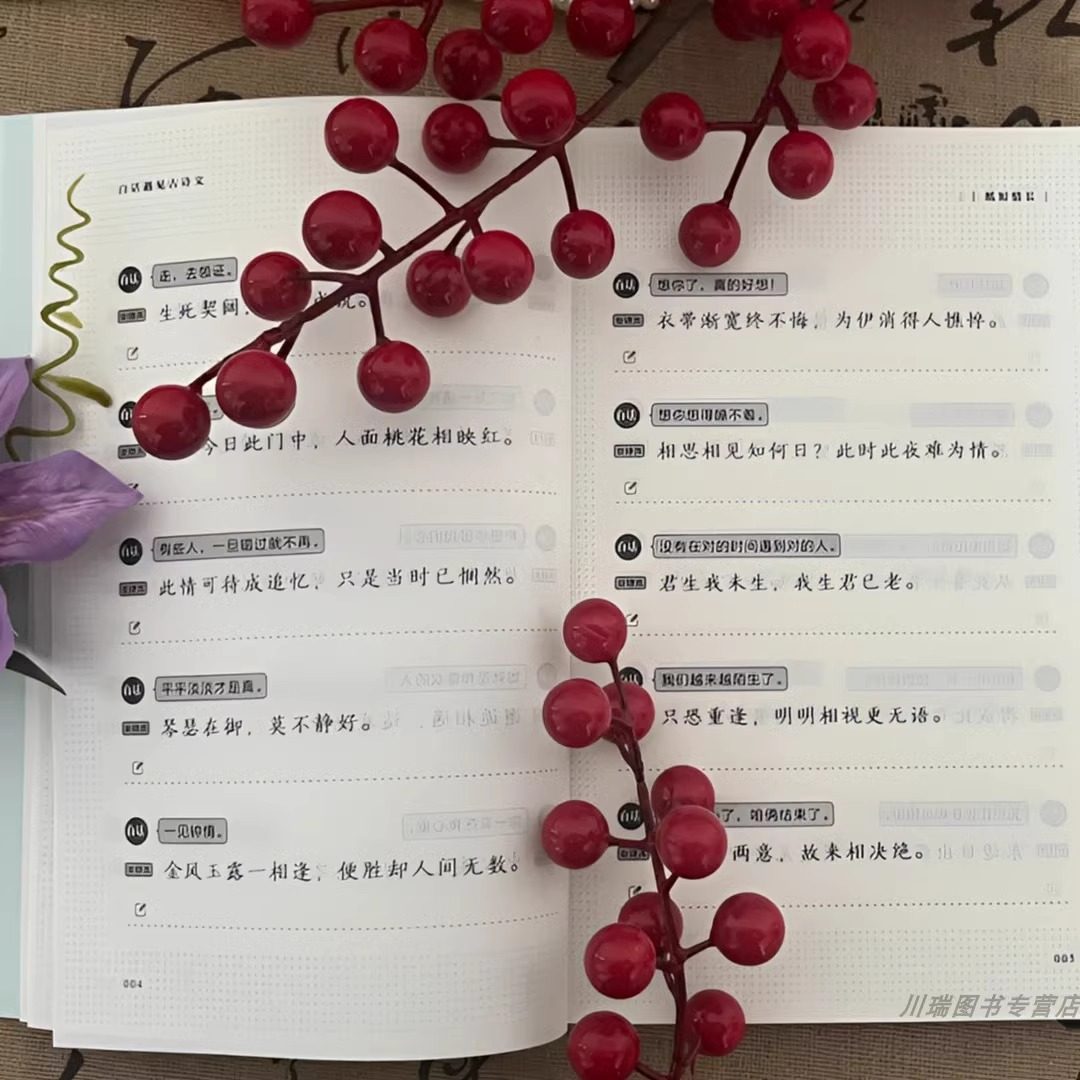 白话遇见古诗文
白话
走，去领证。
生死契阔，
今日此门中，人面桃花相映红。
白话
有些人，一旦错过就不再。
此情可待成追忆，只是当时已惘然。
白话
平平淡淡才是真。
琴瑟在御，莫不静好。
白话
一见钟情。
金风玉露一相逢，便胜却人间无数。
004
白话
想你了，真的好想！
衣带渐宽终不悔，为伊消得人憔悴。
白话
想你想得睡不着。
相思相见如何日？此时此夜难为情。
白话
没有在对的时间遇到对的人。
君生我未生，我生君已老。
我们越来越陌生了。
只恐重逢，明明相视更无语。
了，咱俩结束了。
两意，故来相决绝。
005
川瑞图书专营店